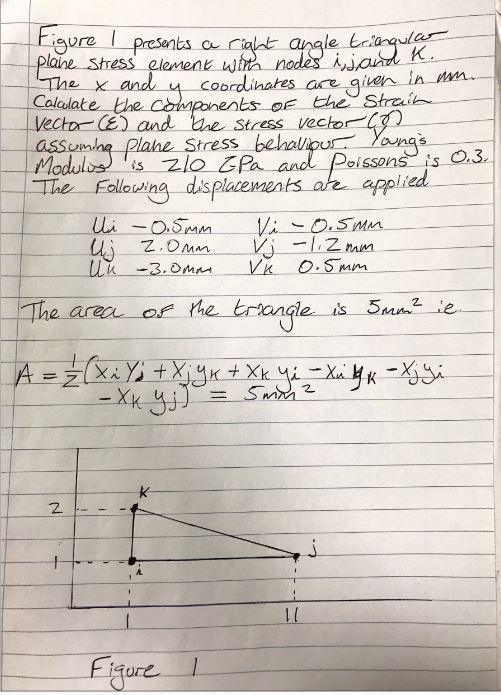 Figure 1 presents a right angle triangular
plane stress element with nodes i,j,and K.
The x and y coordinates are given in mm.
Calculate the components of the strain
vector (ε) and the stress vector (σ)
assuming plane stress behaviour. Young's
Modulus is 210 GPa and Poissons is 0.3.
The following displacements are applied
Ui -0.5mm Vi -0.5mm
Uj 2.0mm Vj -1.2mm
Uk -3.0mm Vk 0.5mm
The area of the triangle is 5mm² ie.
A = 1/2 (xi yj + xj yk + xk yi - xi yk - xj yi
- xk yj) = 5mm²
K
2
j
1
i
1 11
Figure 1